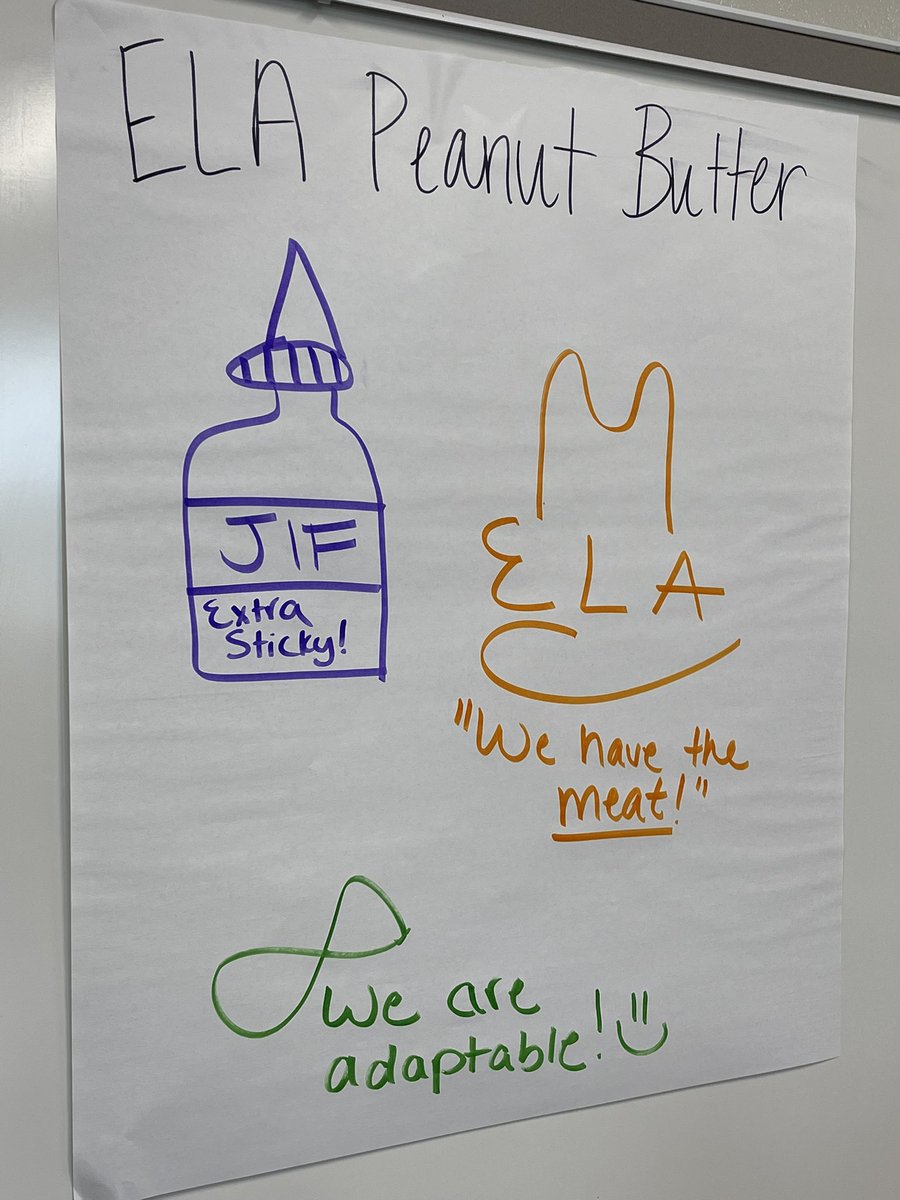 ELA Peanut Butter
JIF
Extra
Sticky!
ELA
"We have the
meat!"
We are
adaptable!